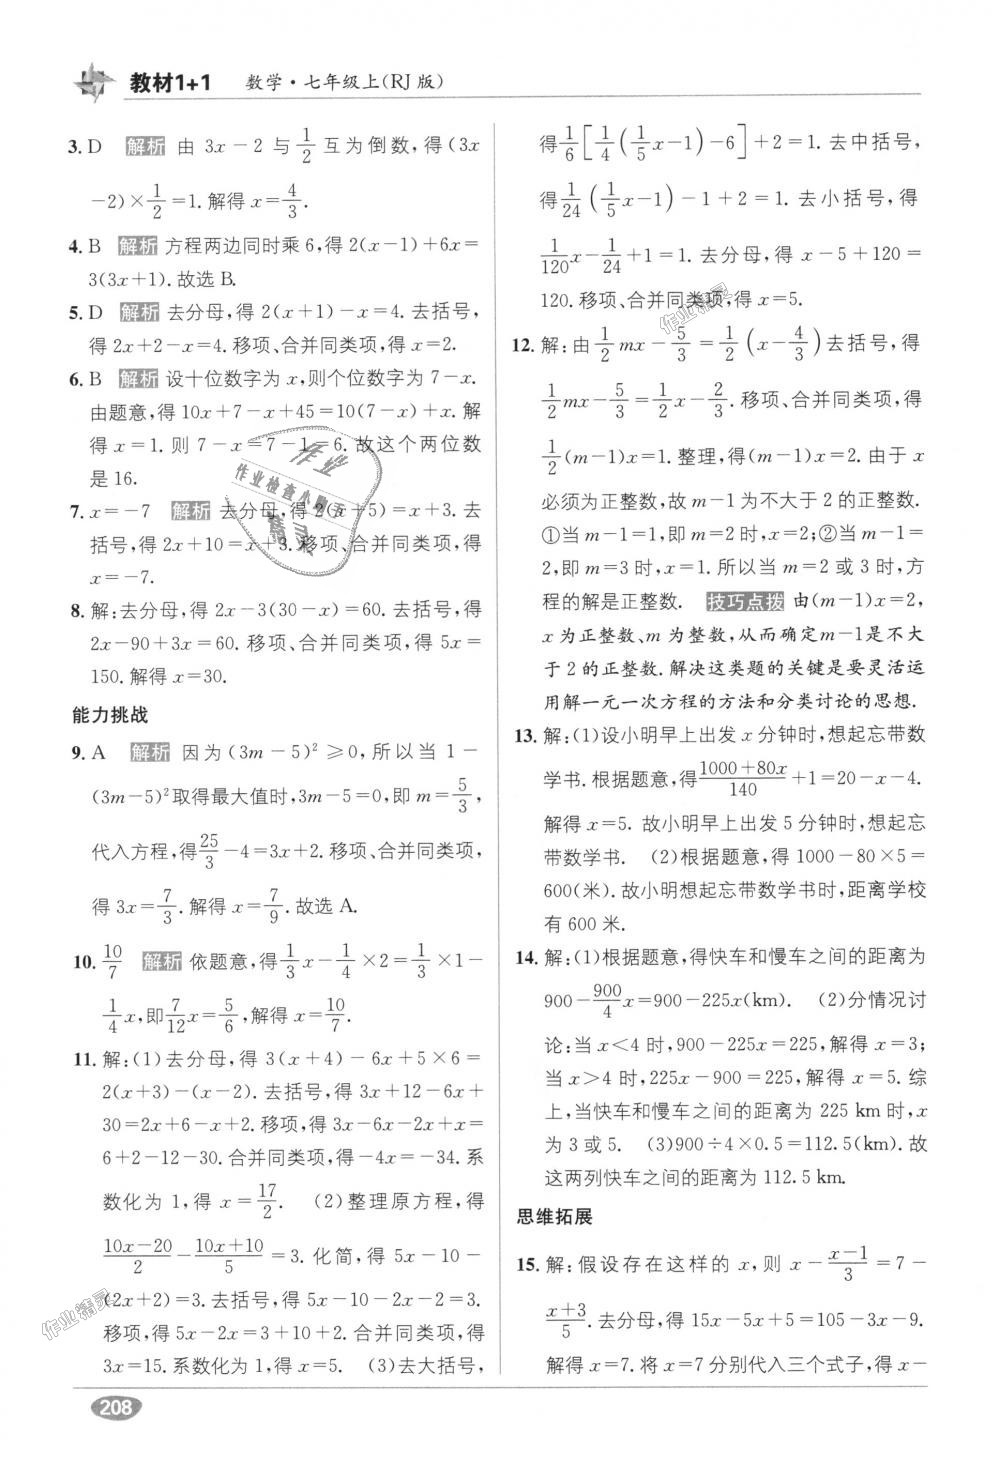 教材1+1 数学·七年级上(RJ版)
3. D 解析 由 3x-2 与 1/2 互为倒数,得(3x
-2)×1/2=1. 解得 x=4/3.
4. B 解析 方程两边同时乘6,得2(x-1)+6x=
3(3x+1). 故选B.
5. D 解析 去分母,得2(x+1)-x=4. 去括号,
得2x+2-x=4. 移项、合并同类项,得x=2.
6. B 解析 设十位数字为x,则个位数字为7-x.
由题意,得10x+7-x+45=10(7-x)+x. 解
得x=1. 则7-x=7-1=6. 故这个两位数
是16.
7. x=-7 解析 去分母,得2(x+5)=x+3. 去
括号,得2x+10=x+3. 移项、合并同类项,得
x=-7.
8. 解:去分母,得2x-3(30-x)=60. 去括号,得
2x-90+3x=60. 移项、合并同类项,得5x=
150. 解得x=30.
能力挑战
9. A 解析 因为(3m-5)²≥0,所以当1-
(3m-5)²取得最大值时,3m-5=0,即m=5/3,
代入方程,得25/3-4=3x+2. 移项、合并同类项,
得3x=7/3. 解得x=7/9. 故选A.
10. 10/7 解析 依题意,得1/3x-1/4×2=1/3×1-
1/4x,即7/12x=5/6,解得x=10/7.
11. 解:(1)去分母,得3(x+4)-6x+5×6=
2(x+3)-(x-2). 去括号,得3x+12-6x+
30=2x+6-x+2. 移项,得3x-6x-2x+x=
6+2-12-30. 合并同类项,得-4x=-34. 系
数化为1,得x=17/2. (2)整理原方程,得
(10x-20)/2-(10x+10)/5=3. 化简,得5x-10-
(2x+2)=3. 去括号,得5x-10-2x-2=3.
移项,得5x-2x=3+10+2. 合并同类项,得
3x=15. 系数化为1,得x=5. (3)去大括号,
得1/6[1/4(1/5x-1)-6]+2=1. 去中括号,
得1/24(1/5x-1)-1+2=1. 去小括号,得
1/120x-1/24+1=1. 去分母,得x-5+120=
120. 移项、合并同类项,得x=5.
12. 解:由1/2mx-5/3=1/2(x-4/3)去括号,得
1/2mx-5/3=1/2x-2/3. 移项、合并同类项,得
1/2(m-1)x=1. 整理,得(m-1)x=2. 由于x
必须为正整数,故m-1为不大于2的正整数.
①当m-1=1,即m=2时,x=2;②当m-1=
2,即m=3时,x=1. 所以当m=2或3时,方
程的解是正整数. 技巧点拨 由(m-1)x=2,
x为正整数、m为整数,从而确定m-1是不大
于2的正整数. 解决这类题的关键是要灵活运
用解一元一次方程的方法和分类讨论的思想.
13. 解:(1)设小明早上出发x分钟时,想起忘带数
学书. 根据题意,得(1000+80x)/140+1=20-x-4.
解得x=5. 故小明早上出发5分钟时,想起忘
带数学书. (2)根据题意,得1000-80×5=
600(米). 故小明想起忘带数学书时,距离学校
有600米.
14. 解:(1)根据题意,得快车和慢车之间的距离为
900-900/4x=900-225x(km). (2)分情况讨
论:当x<4时,900-225x=225,解得x=3;
当x>4时,225x-900=225,解得x=5. 综
上,当快车和慢车之间的距离为225 km时,x
为3或5. (3)900÷4×0.5=112.5(km). 故
这两列快车之间的距离为112.5 km.
思维拓展
15. 解:假设存在这样的x,则x-(x-1)/3=7-
(x+3)/5. 去分母,得15x-5x+5=105-3x-9.
解得x=7. 将x=7分别代入三个式子,得x-
208
作业精灵
作业精灵
作业
作业检查小